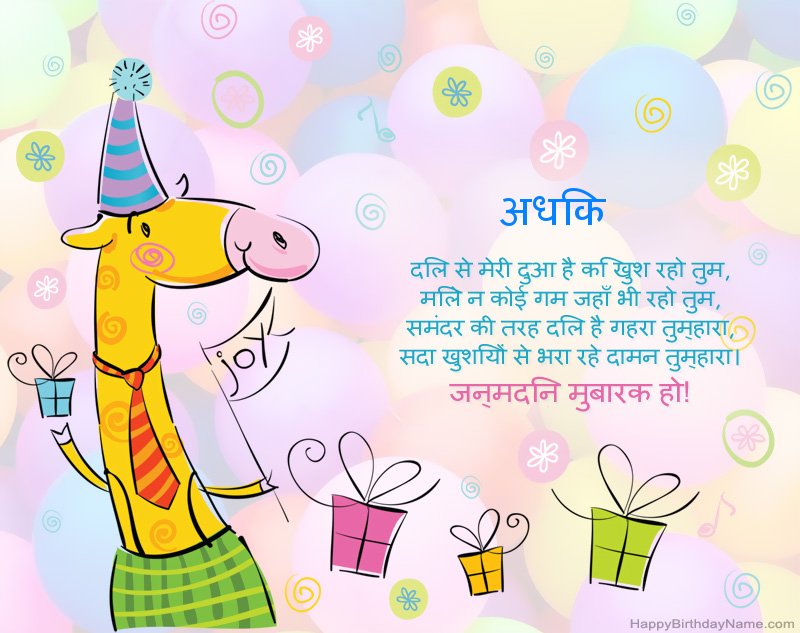 अधकि
दलि से मेरी दुआ है कि खुश रहो तुम,
मलिे न कोई गम जहाँ भी रहो तुम,
समंदर की तरह दलि है गहरा तुम्हारा,
सदा खुशयिों से भरा रहे दामन तुम्हारा।
जन्मदनि मुबारक हो!
joy
HappyBirthdayName.com